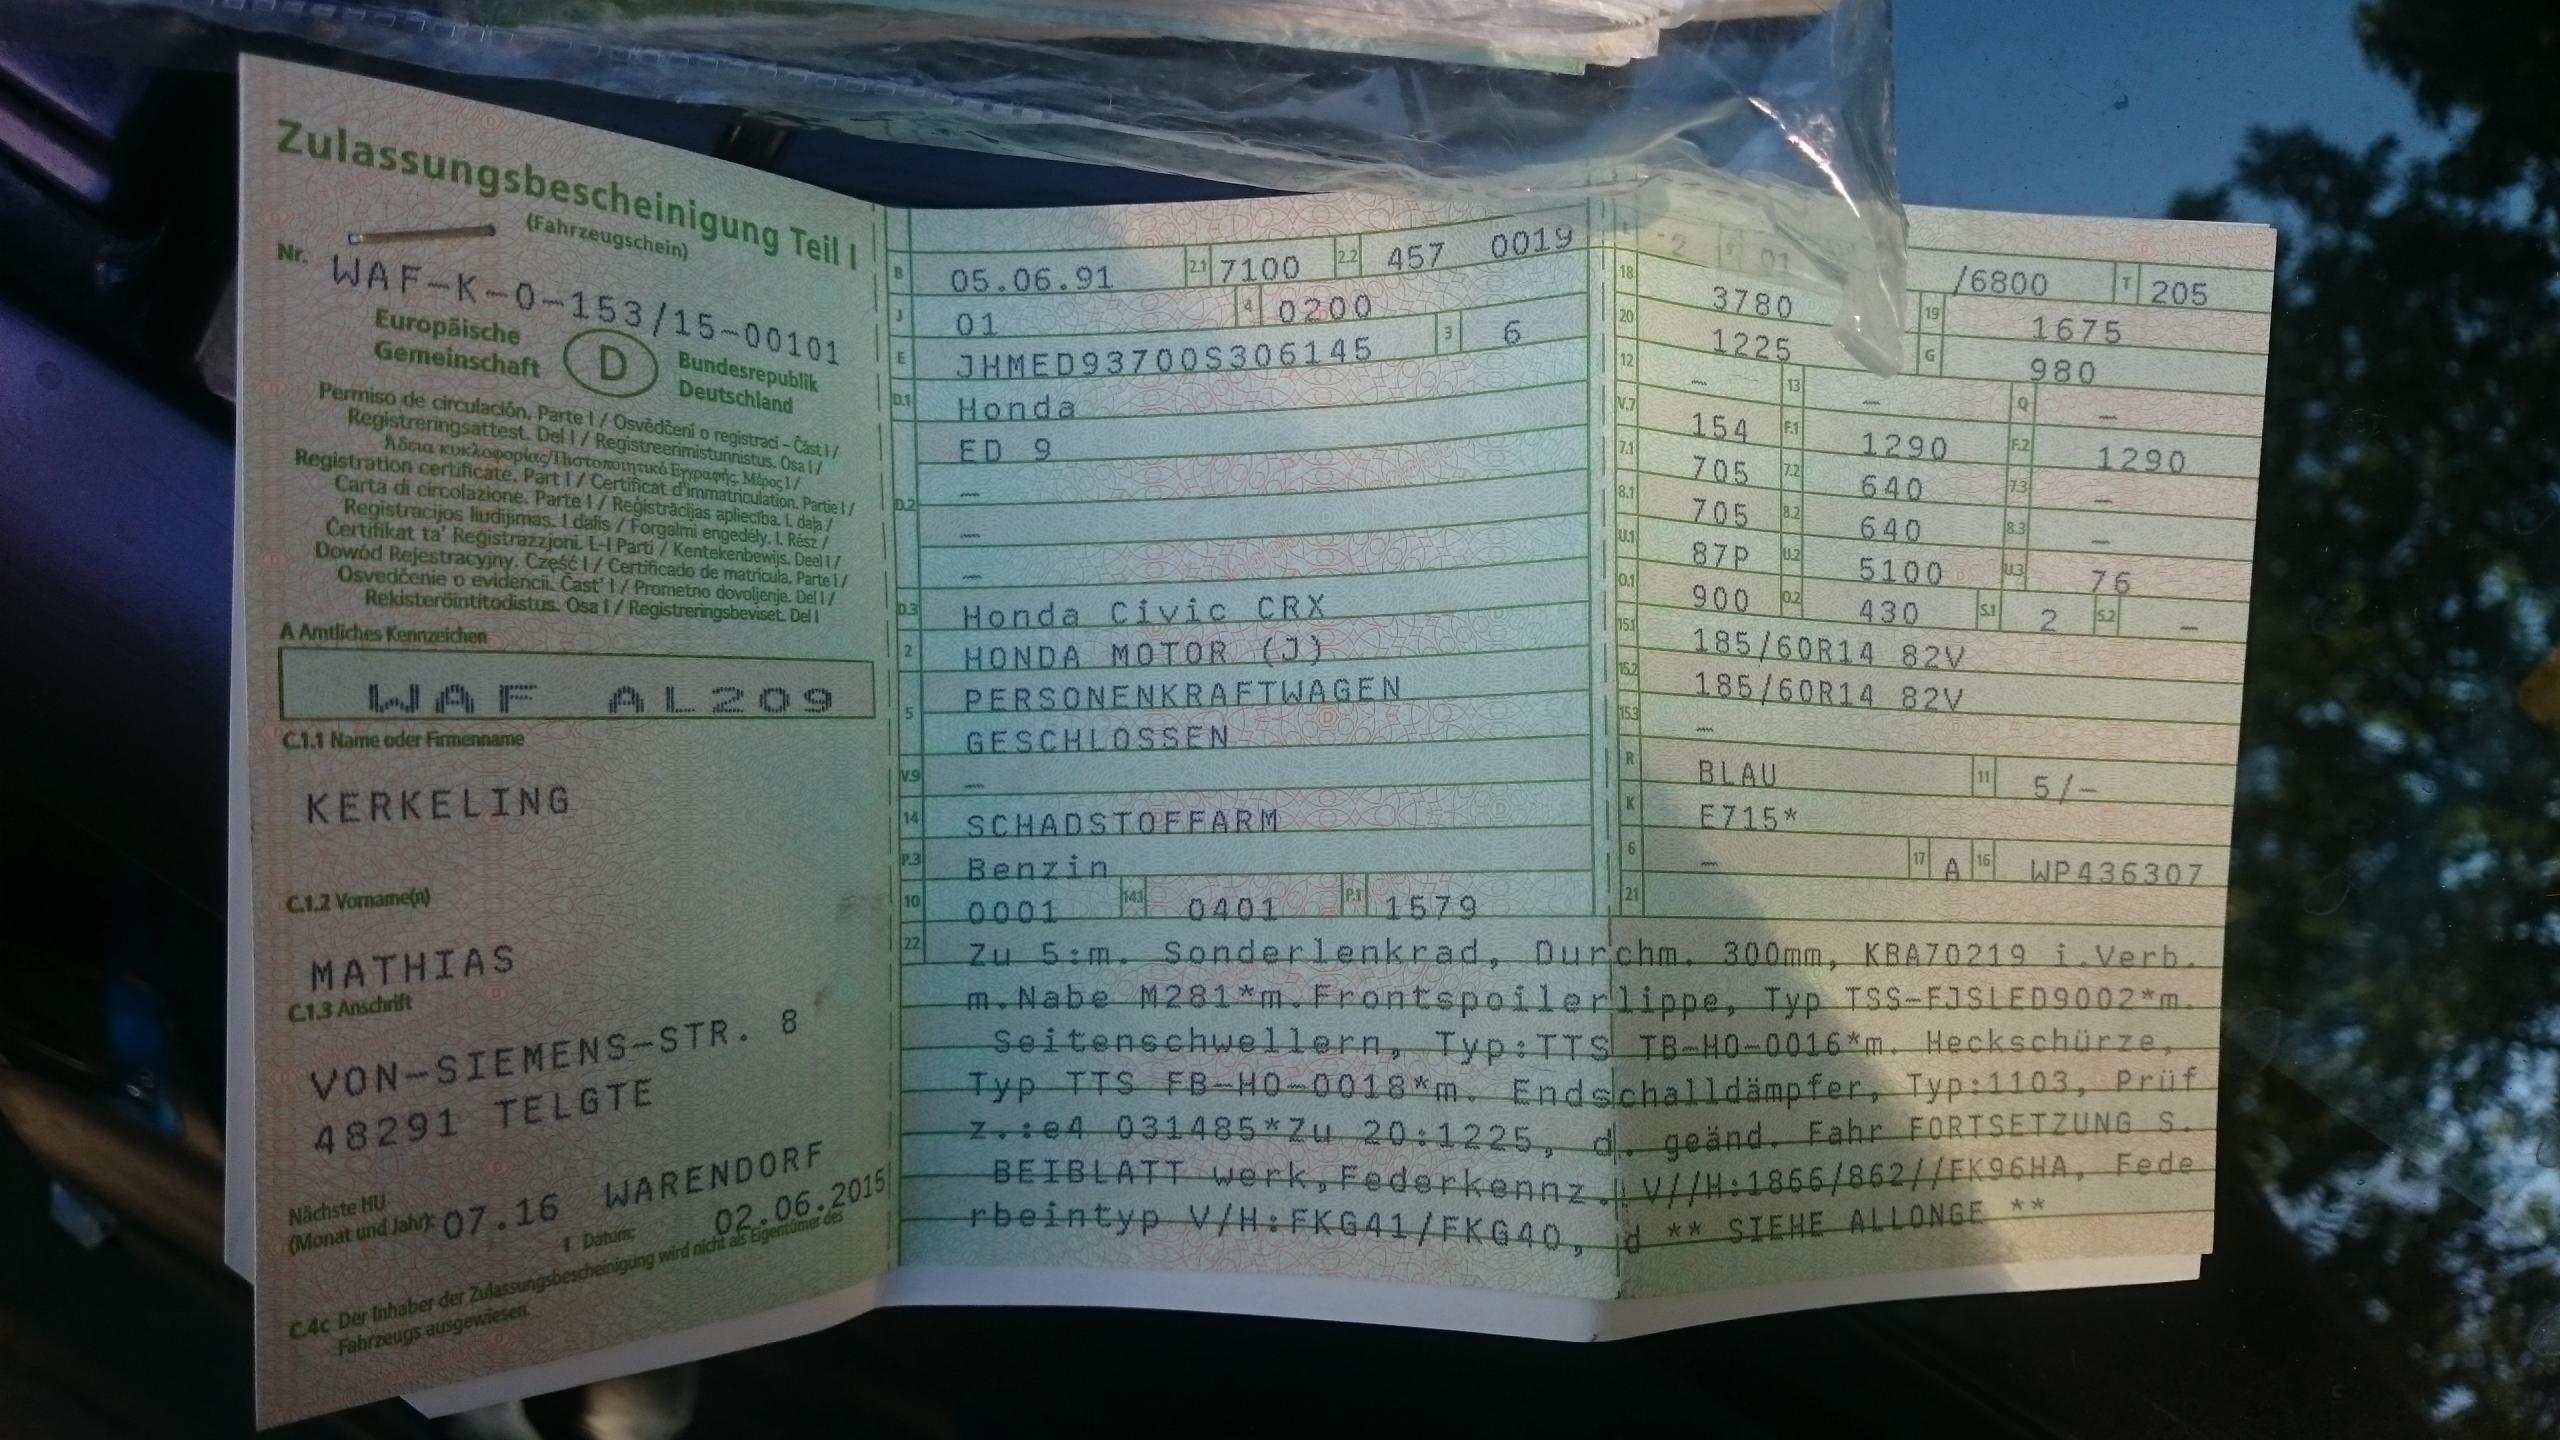 Zulassungsbescheinigung Teil I
(Fahrzeugschein)
Nr. WAF-K-0-153/15-00101
Europäische Gemeinschaft
D
Bundesrepublik Deutschland
Permiso de circulación. Parte I / Osvědčení o registraci – Část I /
Registreringsattest. Del I / Registreerimistunnistus. Osa I /
Άδεια κυκλοφορίας/Πιστοποιητικό Εγγραφής. Μέρος I /
Registration certificate. Part I / Certificat d'immatriculation. Partie I /
Carta di circolazione. Parte I / Reģistrācijas apliecība. I. daļa /
Registracijos liudijimas. I dalis / Forgalmi engedély. I. Rész /
Čertifikat ta' Reġistrazzjoni. L-I Parti / Kentekenbewijs. Deel I /
Dowód Rejestracyjny. Część I / Certificado de matrícula. Parte I /
Osvedčenie o evidencii. Časť I / Prometno dovoljenje. Del I /
Rekisteröintitodistus. Osa I / Registreringsbeviset. Del I
A Amtliches Kennzeichen
WAF AL209
C.1.1 Name oder Firmenname
KERKELING
C.1.2 Vorname(n)
MATHIAS
C.1.3 Anschrift
VON-SIEMENS-STR. 8
48291 TELGTE
Nächste HU
(Monat und Jahr): 07.16 WARENDORF
Datum: 02.06.2015
C.4c Der Inhaber der Zulassungsbescheinigung wird nicht als Eigentümer des
Fahrzeugs ausgewiesen.
B 05.06.91 2.1 7100 2.2 457 0019
J 01 4 0200
E JHMED93700S306145 3 6
D.1 Honda
ED 9
D.2 —
—
—
D.3 Honda Civic CRX
2 HONDA MOTOR (J)
5 PERSONENKRAFTWAGEN
GESCHLOSSEN
V.9 —
14 SCHADSTOFFARM
P.3 Benzin
10 0001 14.1 0401 P.1 1579
L 2 9 01 /6800 T 205
18 3780 19 1675
20 1225 G 980
12 — 13 — Q —
V.7 154 F.1 1290 F.2 1290
7.1 705 7.2 640 7.3 —
8.1 705 8.2 640 8.3 —
U.1 87P U.2 5100 U.3 76
O.1 900 O.2 430 S.1 2 S.2 —
15.1 185/60R14 82V
15.2 185/60R14 82V
15.3 —
R BLAU 11 5/-
K E715*
6 — 17 A 16 WP436307
21
22 Zu 5:m. Sonderlenkrad, Durchm. 300mm, KBA70219 i.Verb.
m.Nabe M281*m.Frontspoilerlippe, Typ TSS-FJSLED9002*m.
Seitenschwellern, Typ:TTS TB-HO-0016*m. Heckschürze,
Typ TTS FB-HO-0018*m. Endschalldämpfer, Typ:1103, Prüf
z.:e4 031485*Zu 20:1225, d. geänd. Fahr FORTSETZUNG S.
BEIBLATT werk,Federkennz. V//H:1866/862//FK96HA, Fede
rbeintyp V/H:FKG41/FKG40, d ** SIEHE ALLONGE **